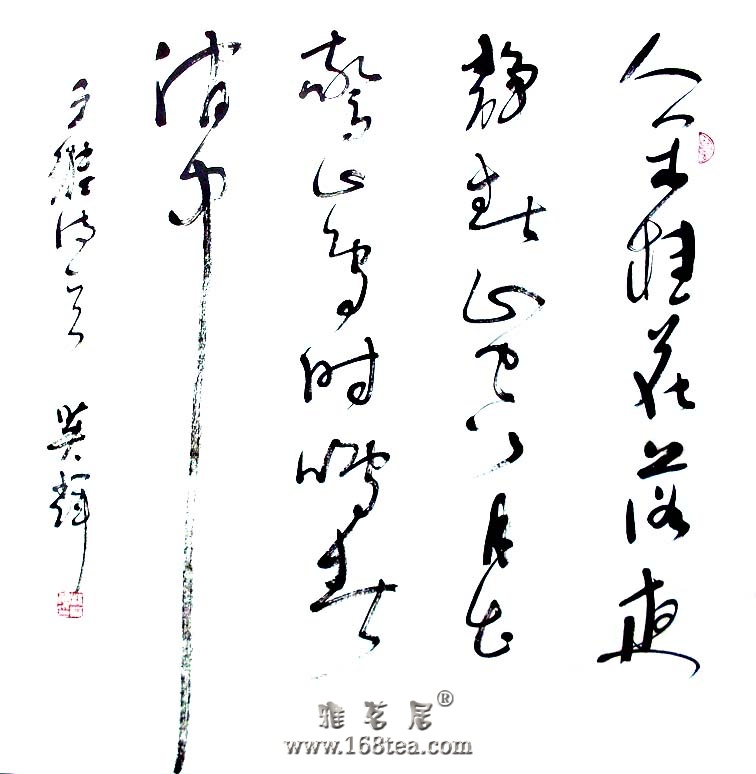 人闲桂花落夜
静春山空月出
驚山鸟时鸣春
涧中
王維诗
輝
雅茗居®
www.168tea.com